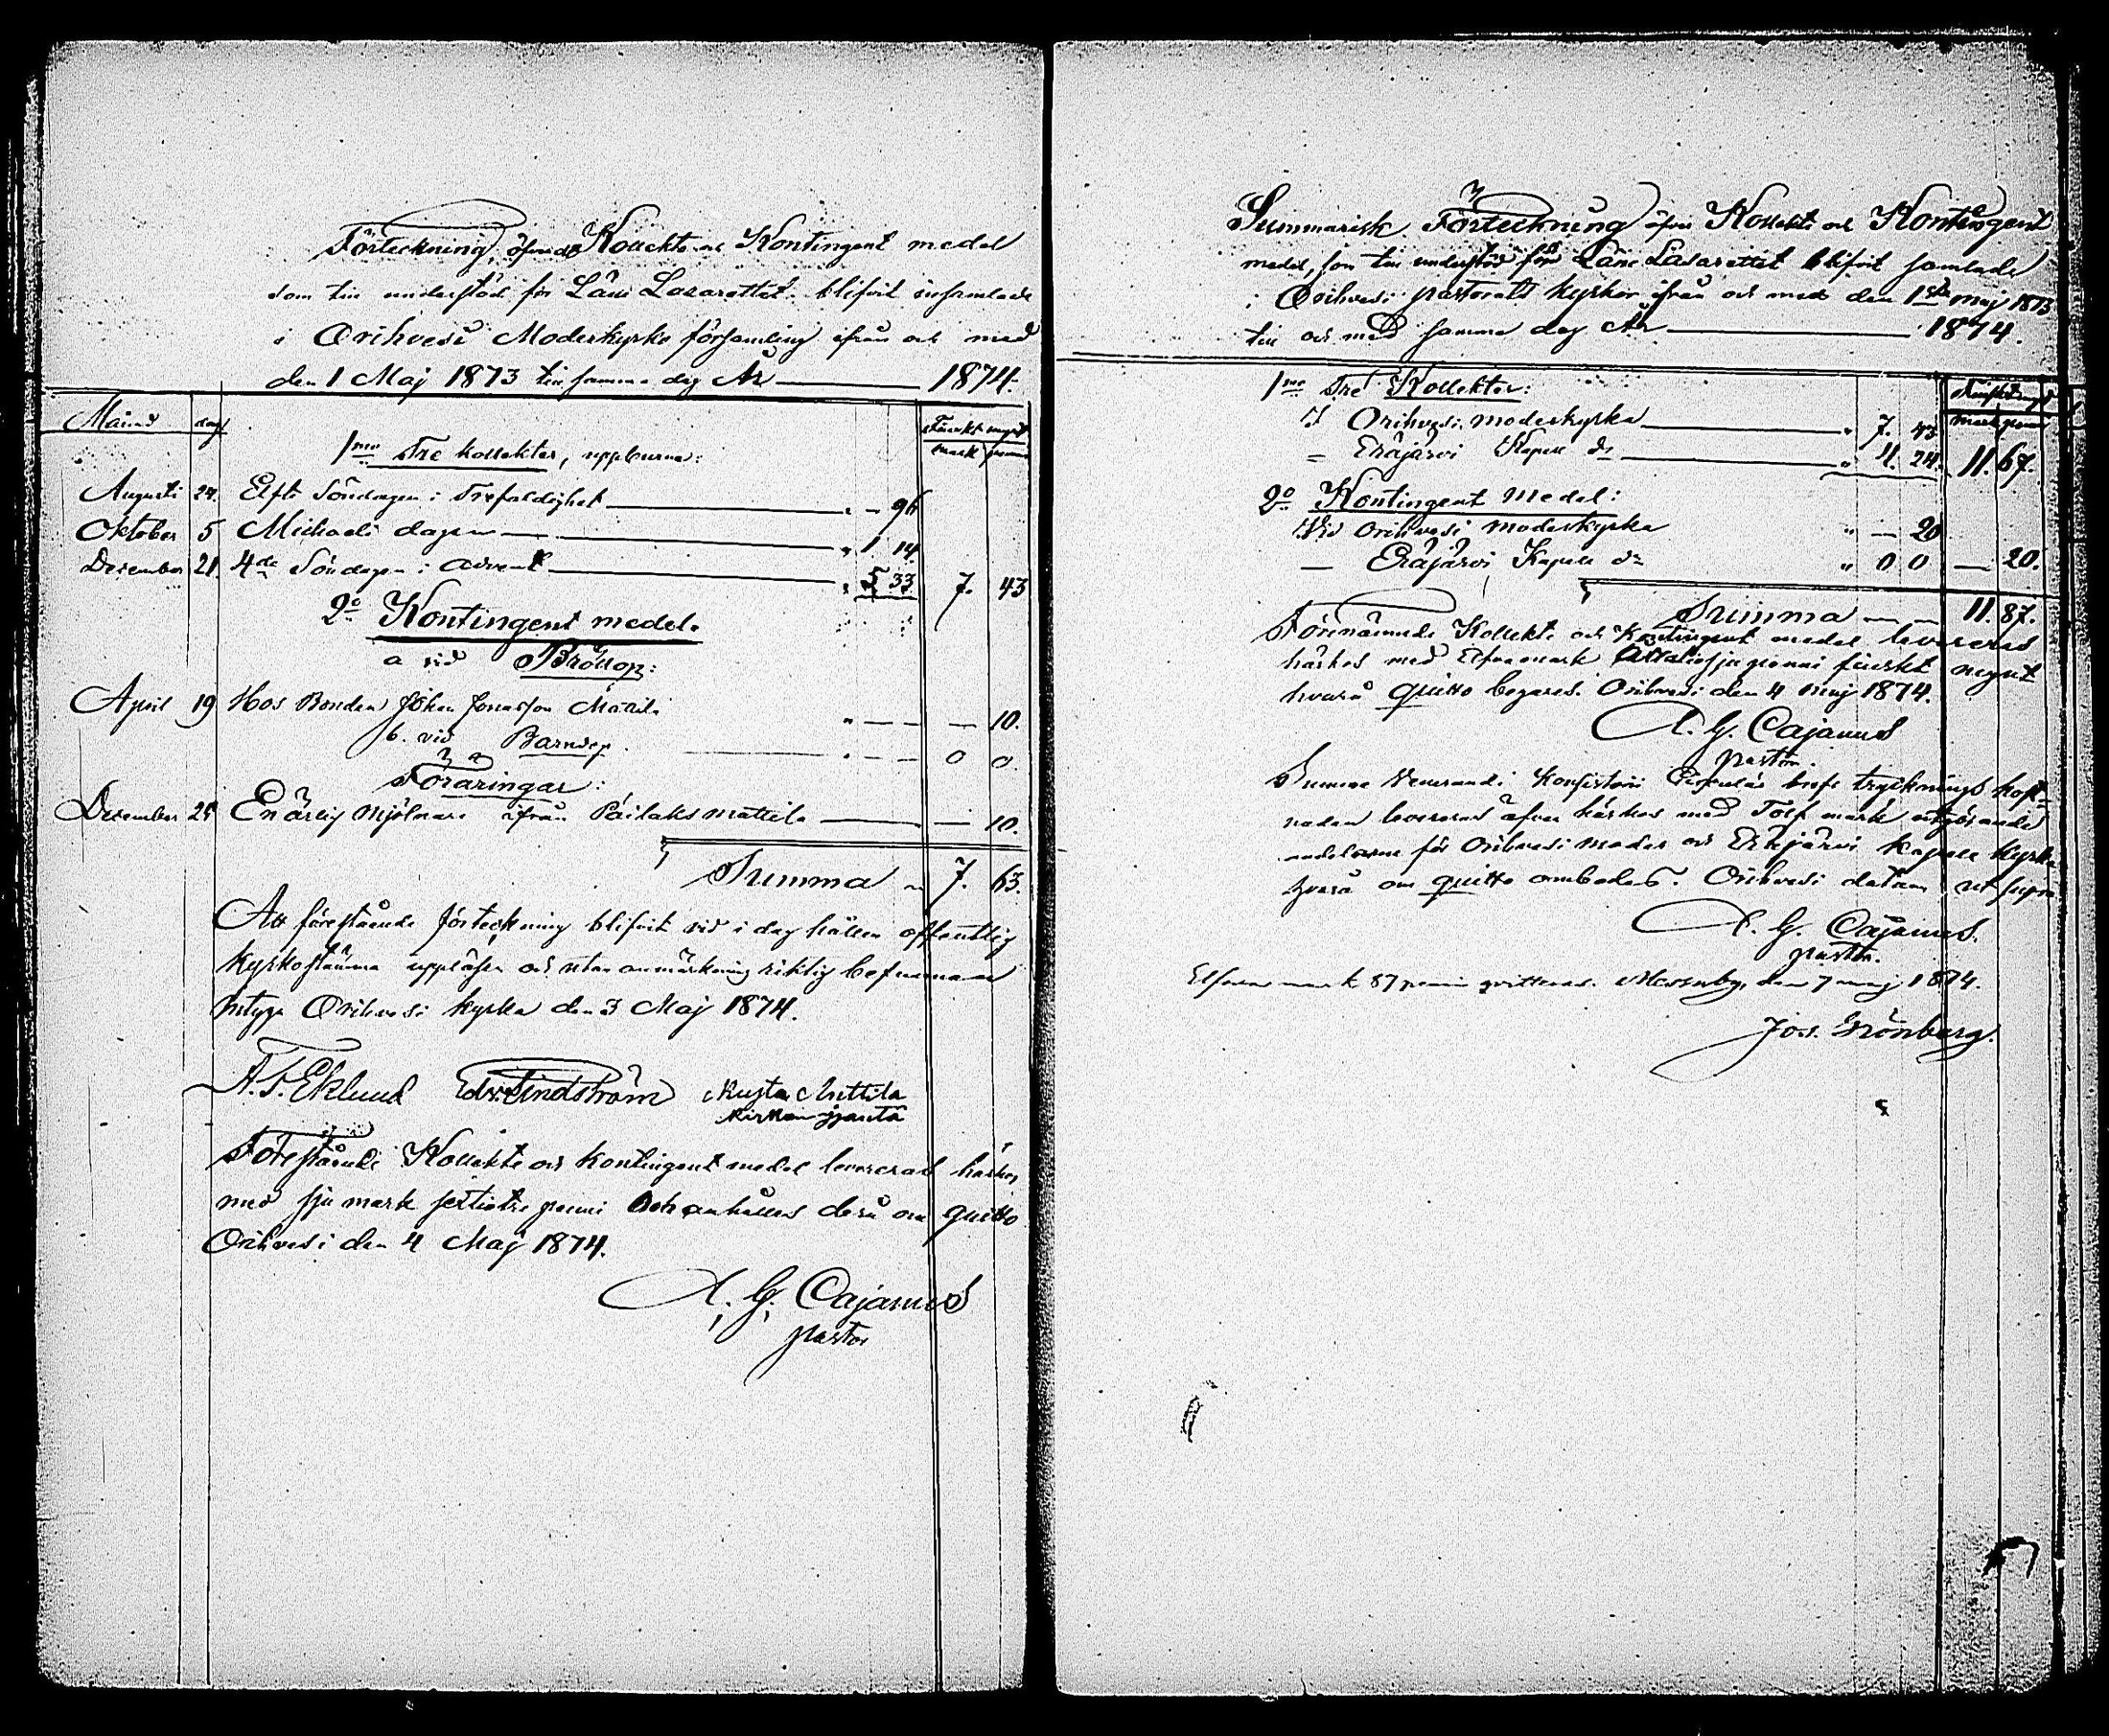 Förteckning, öfver de Kollekts och Kontingent medel
som till understöd för Läns Lazarettet blifvit insamlade
i Orihvesi Moderkyrko församling ifrån och med
den 1 Maj 1873 till samma dag År — 1874.
Månad dag Finskt mynt
mark penni
1mo Tre kollekter, uppburne:
Augusti 24. Elfte Söndagen i Trefaldighet — " — 96
Oktober 5 Michaeli dagen — " 1. 14
December 21. 4de Söndagen i Advent — " 5 33 7. 43
2o Kontingent medel.
a vid Bröllop:
April 19 Hos Bonden Johan Jonasson Mattila " — — — 10.
b. vid Barndop. — " — — 0 0.
Föräringar:
December 25 En ärlig Mjölnare ifrån Päilaks mattila — — 10.
Summa " 7. 63.
Att förestående förteckning blifvit vid i dag hållen offentlig
kyrkostämma uppläsen och utan anmärkning riktig befunnen
intyga Orihvesi kyrka den 3 Maj 1874.
A. F. Eklund Edv. Lindström Kusta Anttila
kirkon isäntä
Förestående Kollekts och kontingent medel levereras härhos
med sju mark sextiotre penni och anhålles derå om quitto
Orihvesi den 4 Maj 1874.
A. G. Cajanus
pastor
Summarisk Förteckning öfver Kollekts och Kontingent
medel, som till understöd för Läns Lasarettet blifvit samlade
i Orihvesi pastorats kyrkor ifrån och med den 1sta maj 1873
till och med samma dag År — 1874.
1mo Tre Kollekter: Finskt mynt
mark penni
I Orihvesi moderkyrka — " 7. 43
= Eräjärvi Kapell do — " 4. 24. 11. 67.
2o Kontingent medel:
Vid Orihvesi moderkyrka " — 20
— Eräjärvi Kapell do " 0 0 — 20.
Summa — — 11. 87.
Förenämnde Kollekts och Kontingent medel levereras
härhos med Elfva mark åttatiosju penni finskt mynt
hvarå quitto begäres. Orihvesi den 4 maj 1874.
A. G. Cajanus
pastor.
Summa Venerandi Konsistorii Cirkulär brefs trycknings kost-
naden levereras äfven härhos med Tolf mark utgörande
andelarne för Orihvesi moder och Eräjärvi kapell kyrka
hvarå om quitto anhedes. Orihvesi datum ut supra
A. G. Cajanus.
pastor.
Elfva mark 87 penni qvitteras. Messuby, den 7 maj 1874.
Jos. Grönberg.